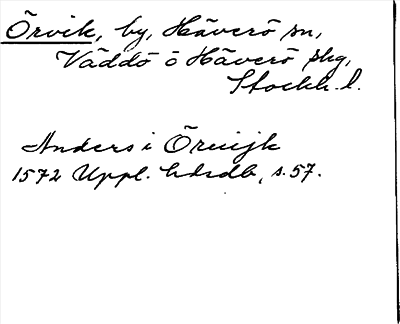 Örvik, by, Häverö sn,
Väddö o Häverö skg,
Stockh. l.
Anders i Öruijk
1572 Uppl. hdsdb, s. 57.